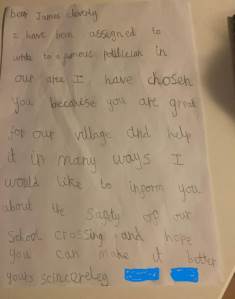 Dear James cleverly
I have been assigned to
write to a famous politician in
our area I have chosen
you because you are great
for our village and help
it in many ways I
would like to inform you
about the safty of our
school crossing and hope
you can make it better
yours scincereley